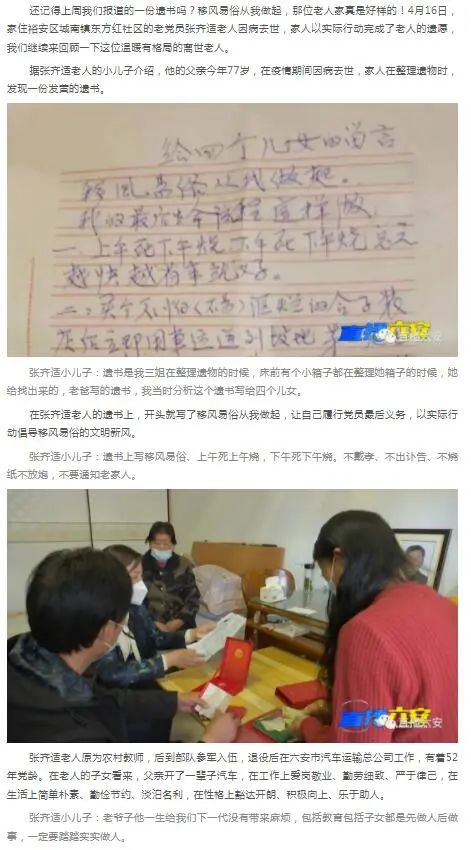 还记得上周我们报道的一份遗书吗？移风易俗从我做起，那位老人家真是好样的！4月16日，
家住裕安区城南镇东方红社区的老党员张齐适老人因病去世，家人以实际行动完成了老人的遗愿，
我们继续来回顾一下这位温暖有格局的离世老人。
据张齐适老人的小儿子介绍，他的父亲今年77岁，在疫情期间因病去世，家人在整理遗物时，
发现一份发黄的遗书。
给四个儿女的留言
移风易俗从我做起.
一、上午死下午烧 下午死下午烧
越快越
直播六安
张齐适小儿子：遗书是我三姐在整理遗物的时候，床前有个小箱子都在整理她箱子的时候，她
给找出来的，老爸写的遗书，我当时分析这个遗书写给四个儿女。
在张齐适老人的遗书上，开头就写了移风易俗从我做起，让自己履行党员最后义务，以实际行
动倡导移风易俗的文明新风。
张齐适小儿子：遗书上写移风易俗、上午死上午烧，下午死下午烧。不戴孝、不出讣告、不烧
纸不放炮，不要通知老家人。
直播六安
张齐适老人原为农村教师，后到部队参军入伍，退役后在六安市汽车运输总公司工作，有着52
年党龄。在老人的子女看来，父亲开了一辈子汽车，在工作上爱岗敬业、勤劳细致、严于律己，在
生活上简单朴素、勤俭节约、淡泊名利，在性格上豁达开朗、积极向上、乐于助人。
张齐适小儿子：老爷子他一生给我们下一代没有带来麻烦，包括教育包括子女都是先做人后做
事，一定要踏踏实实做人。